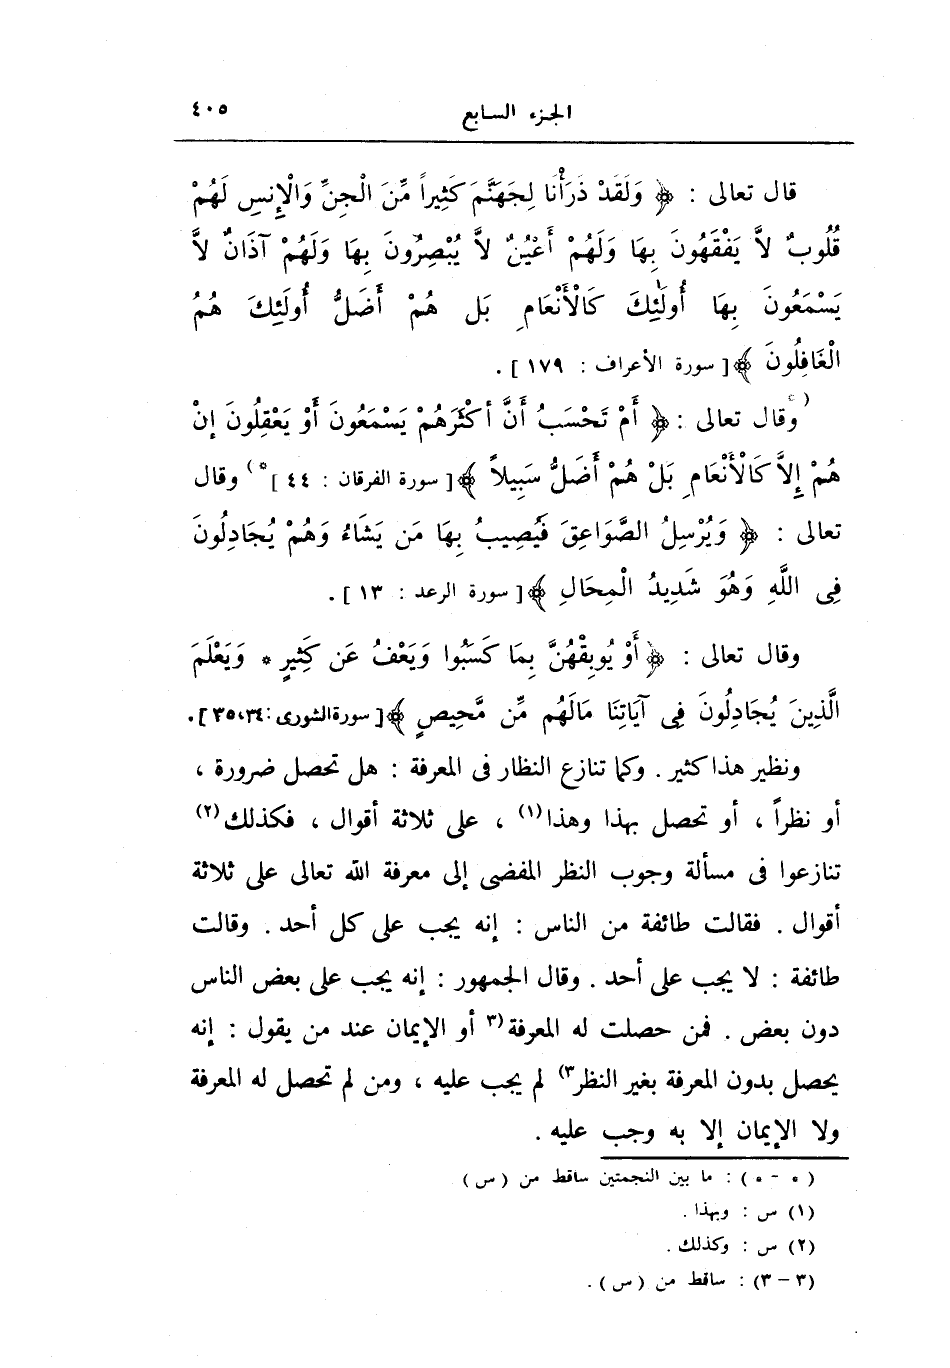 الجزء السابع ٤٠٥
قال تعالى : ﴿ وَلَقَدْ ذَرَأْنَا لِجَهَنَّمَ كَثِيراً مِّنَ الْجِنِّ وَالْإِنسِ لَهُمْ
قُلُوبٌ لاَّ يَفْقَهُونَ بِهَا وَلَهُمْ أَعْيُنٌ لاَّ يُبْصِرُونَ بِهَا وَلَهُمْ آذَانٌ لاَّ
يَسْمَعُونَ بِهَا أُولَٰئِكَ كَالْأَنْعَامِ بَل هُمْ أَضَلُّ أُولَئِكَ هُمُ
الْغَافِلُونَ ﴾ [ سورة الأعراف : ١٧٩ ] .
(* وقال تعالى : ﴿ أَمْ تَحْسَبُ أَنَّ أَكْثَرَهُمْ يَسْمَعُونَ أَوْ يَعْقِلُونَ إِنْ
هُمْ إِلاَّ كَالْأَنْعَامِ بَلْ هُمْ أَضَلُّ سَبِيلاً ﴾ [ سورة الفرقان : ٤٤ ] *) وقال
تعالى : ﴿ وَيُرْسِلُ الصَّوَاعِقَ فَيُصِيبُ بِهَا مَن يَشَاءُ وَهُمْ يُجَادِلُونَ
فِى اللَّهِ وَهُوَ شَدِيدُ الْمِحَالِ ﴾ [ سورة الرعد : ١٣ ] .
وقال تعالى : ﴿ أَوْ يُوبِقْهُنَّ بِمَا كَسَبُوا وَيَعْفُ عَن كَثِيرٍ * وَيَعْلَمَ
الَّذِينَ يُجَادِلُونَ فِى آيَاتِنَا مَالَهُم مِّن مَّحِيصٍ ﴾ [ سورة الشورى : ٣٤، ٣٥ ] .
ونظير هذا كثير . وكما تنازع النظار فى المعرفة : هل تحصل ضرورة ،
أو نظراً ، أو تحصل بهذا وهذا(١) ، على ثلاثة أقوال ، فكذلك(٢)
تنازعوا فى مسألة وجوب النظر المفضى إلى معرفة الله تعالى على ثلاثة
أقوال . فقالت طائفة من الناس : إنه يجب على كل أحد . وقالت
طائفة : لا يجب على أحد . وقال الجمهور : إنه يجب على بعض الناس
دون بعض . فمن حصلت له المعرفة (٣ أو الإيمان عند من يقول : إنه
يحصل بدون المعرفة بغير النظر ٣) لم يجب عليه ، ومن لم تحصل له المعرفة
ولا الإيمان إلا به وجب عليه .
( * - * ) : ما بين النجمتين ساقط من ( س )
(١) س : وبهذا .
(٢) س : وكذلك .
(٣ - ٣) : ساقط من ( س ) .